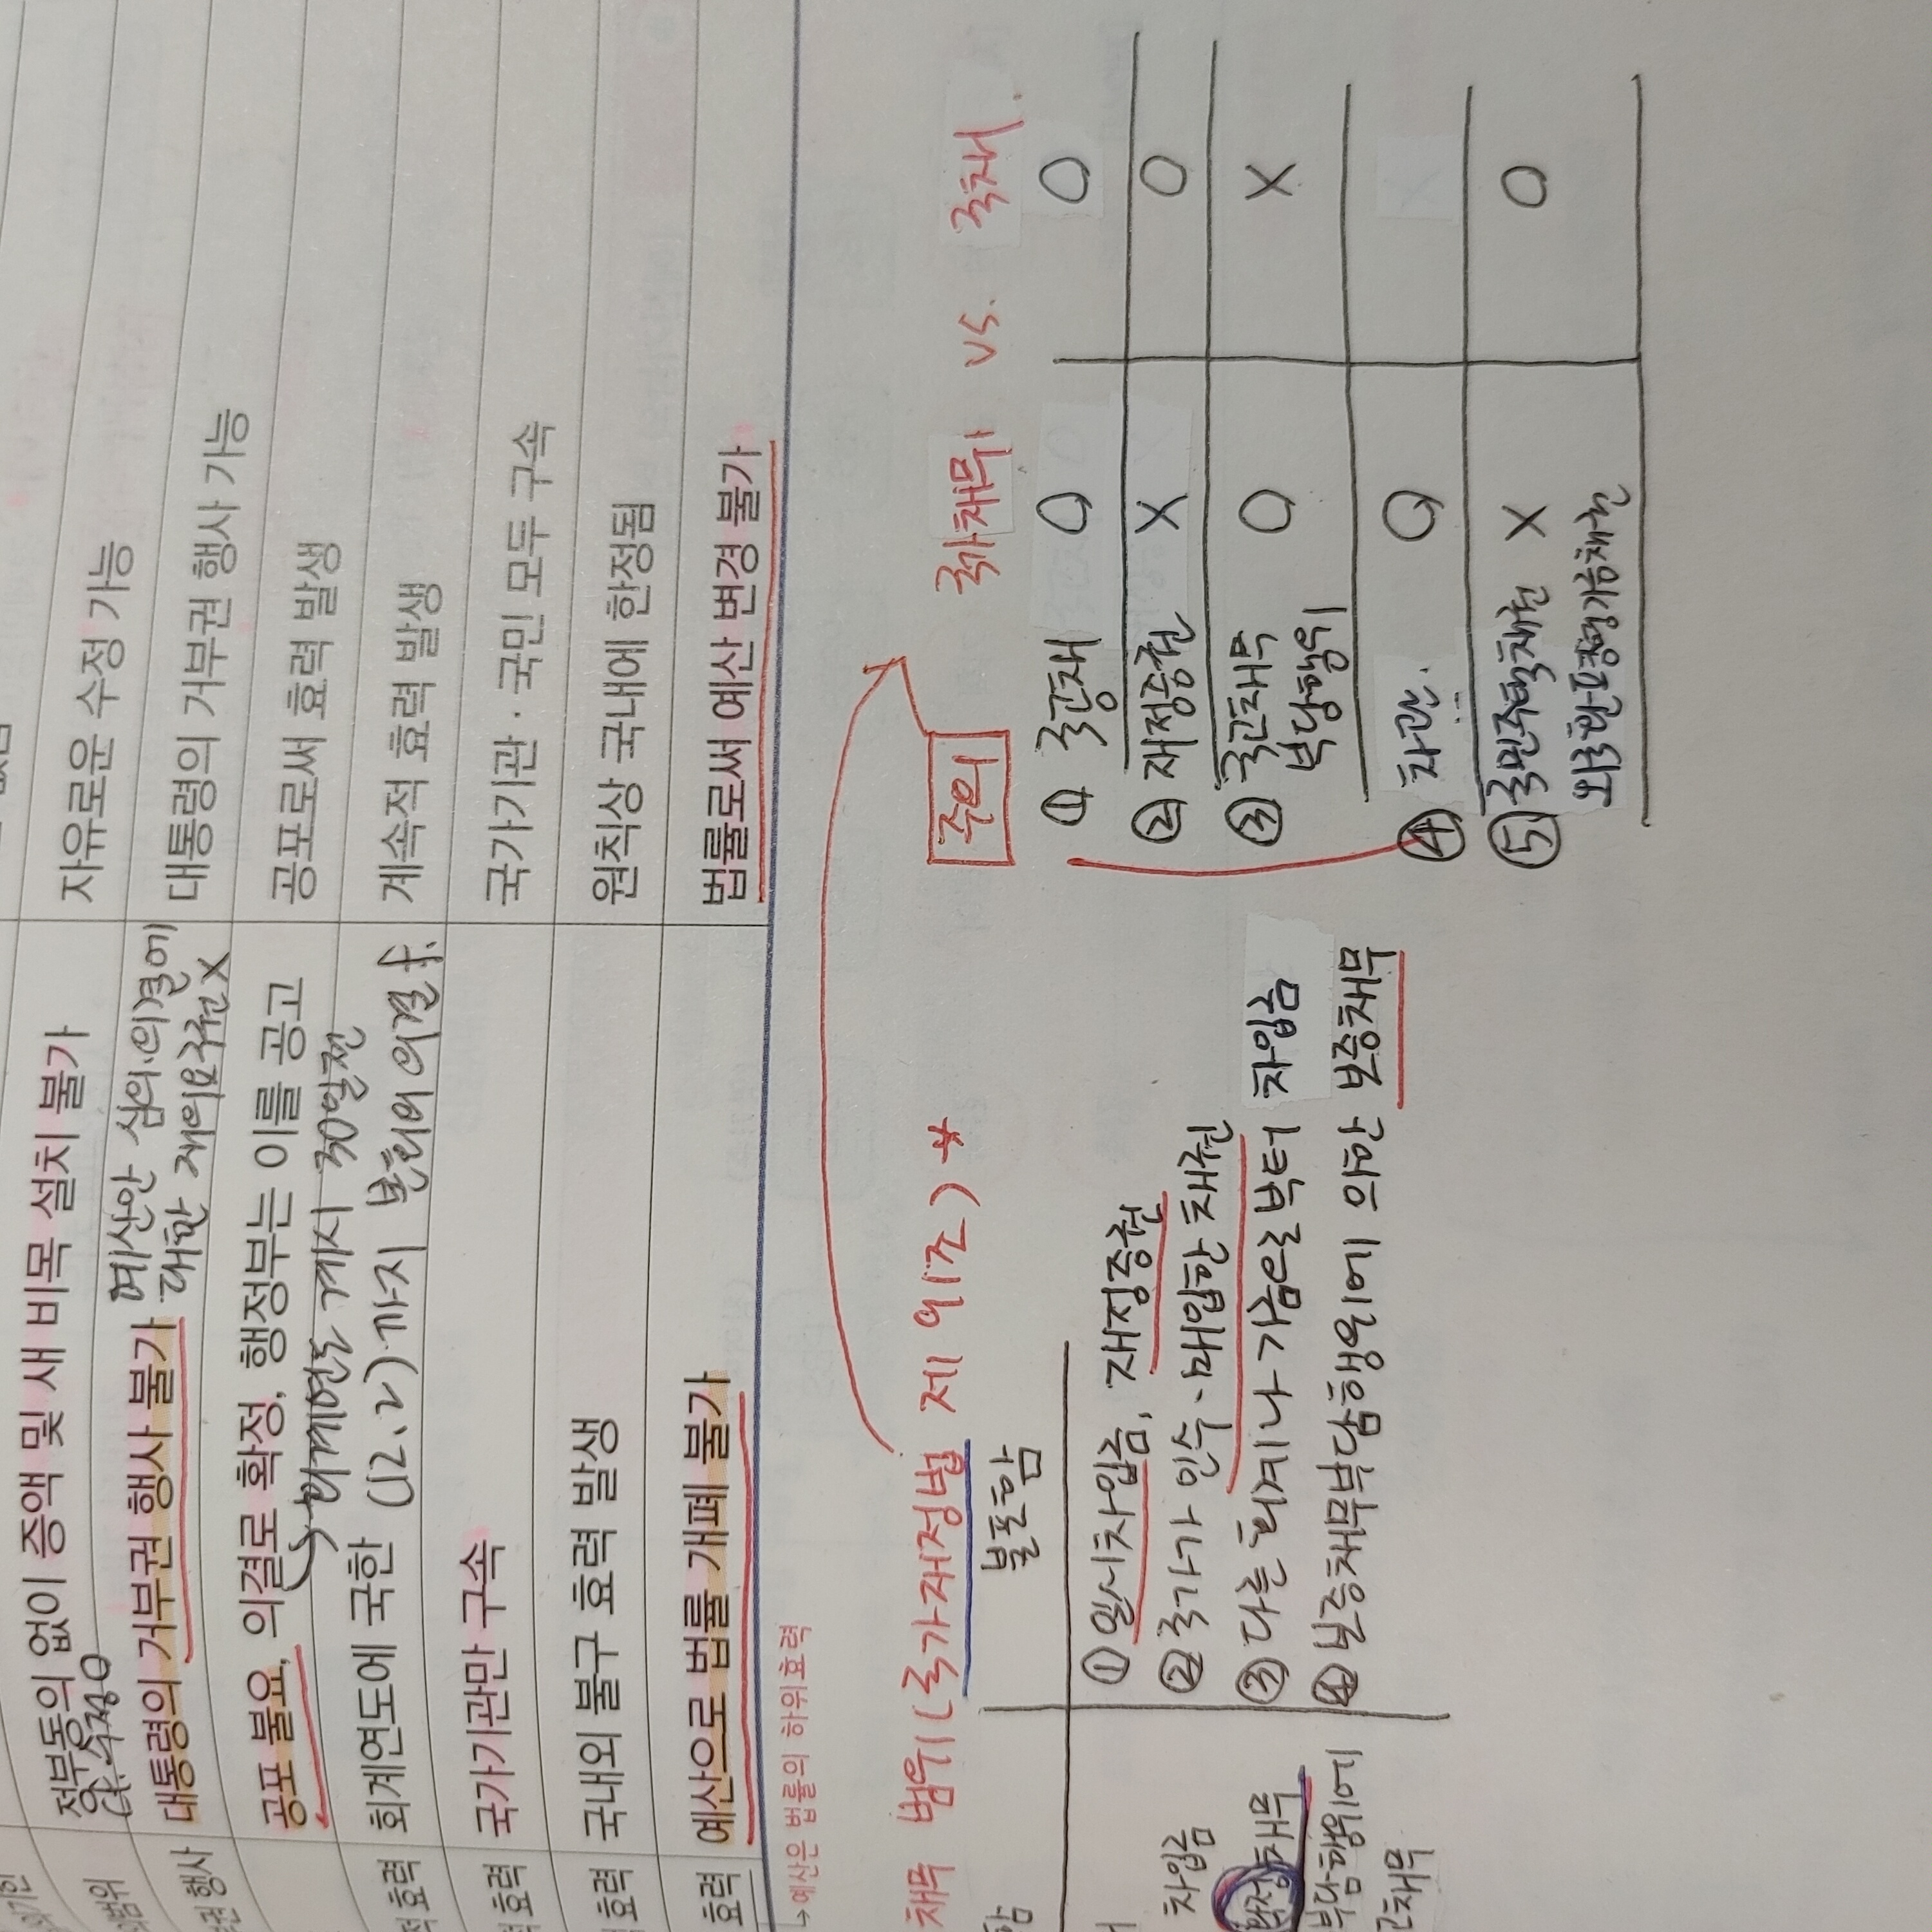 자유로운 수정 가능
대통령의 거부권 행사 가능
공포로써 효력 발생
계속적 효력 발생
국가기관·국민 모두 구속
원칙상 국내에 한정됨
법률로써 예산 변경 불가
정부동의 없이 증액 및 새 비목 설치 불가
대통령의 거부권 행사 불가
예산안 심의·의결에
대한 재의요구권 X
공포 불요, 의결로 확정, 행정부는 이를 공고
회계연도 개시 30일전
회계연도에 국한
(12.2)까지 본회의 의결
국가기관만 구속
국내외 불구 효력 발생
예산으로 법률 개폐 불가
범위
권 행사
효력
효력
효력
효력
→예산은 법률의 하위효력
채무 범위(국가재정법 제 91조)*
불포함
① 일시차입금, 재정증권
② 국가가 인수·매입한 채권
③ 다른 회계나 기금으로부터 차입금
④ 보증채무부담행위에 의한 보증채무
차입금
확정채무
부담행위에
채무
주의
국가채무 vs. 국채
① 국공채 O O
② 재정증권 X O
③ 국고채무 O X
부담행위
④ 차관 O
⑤ 국민주택채권 X O
외국환평형기금채권